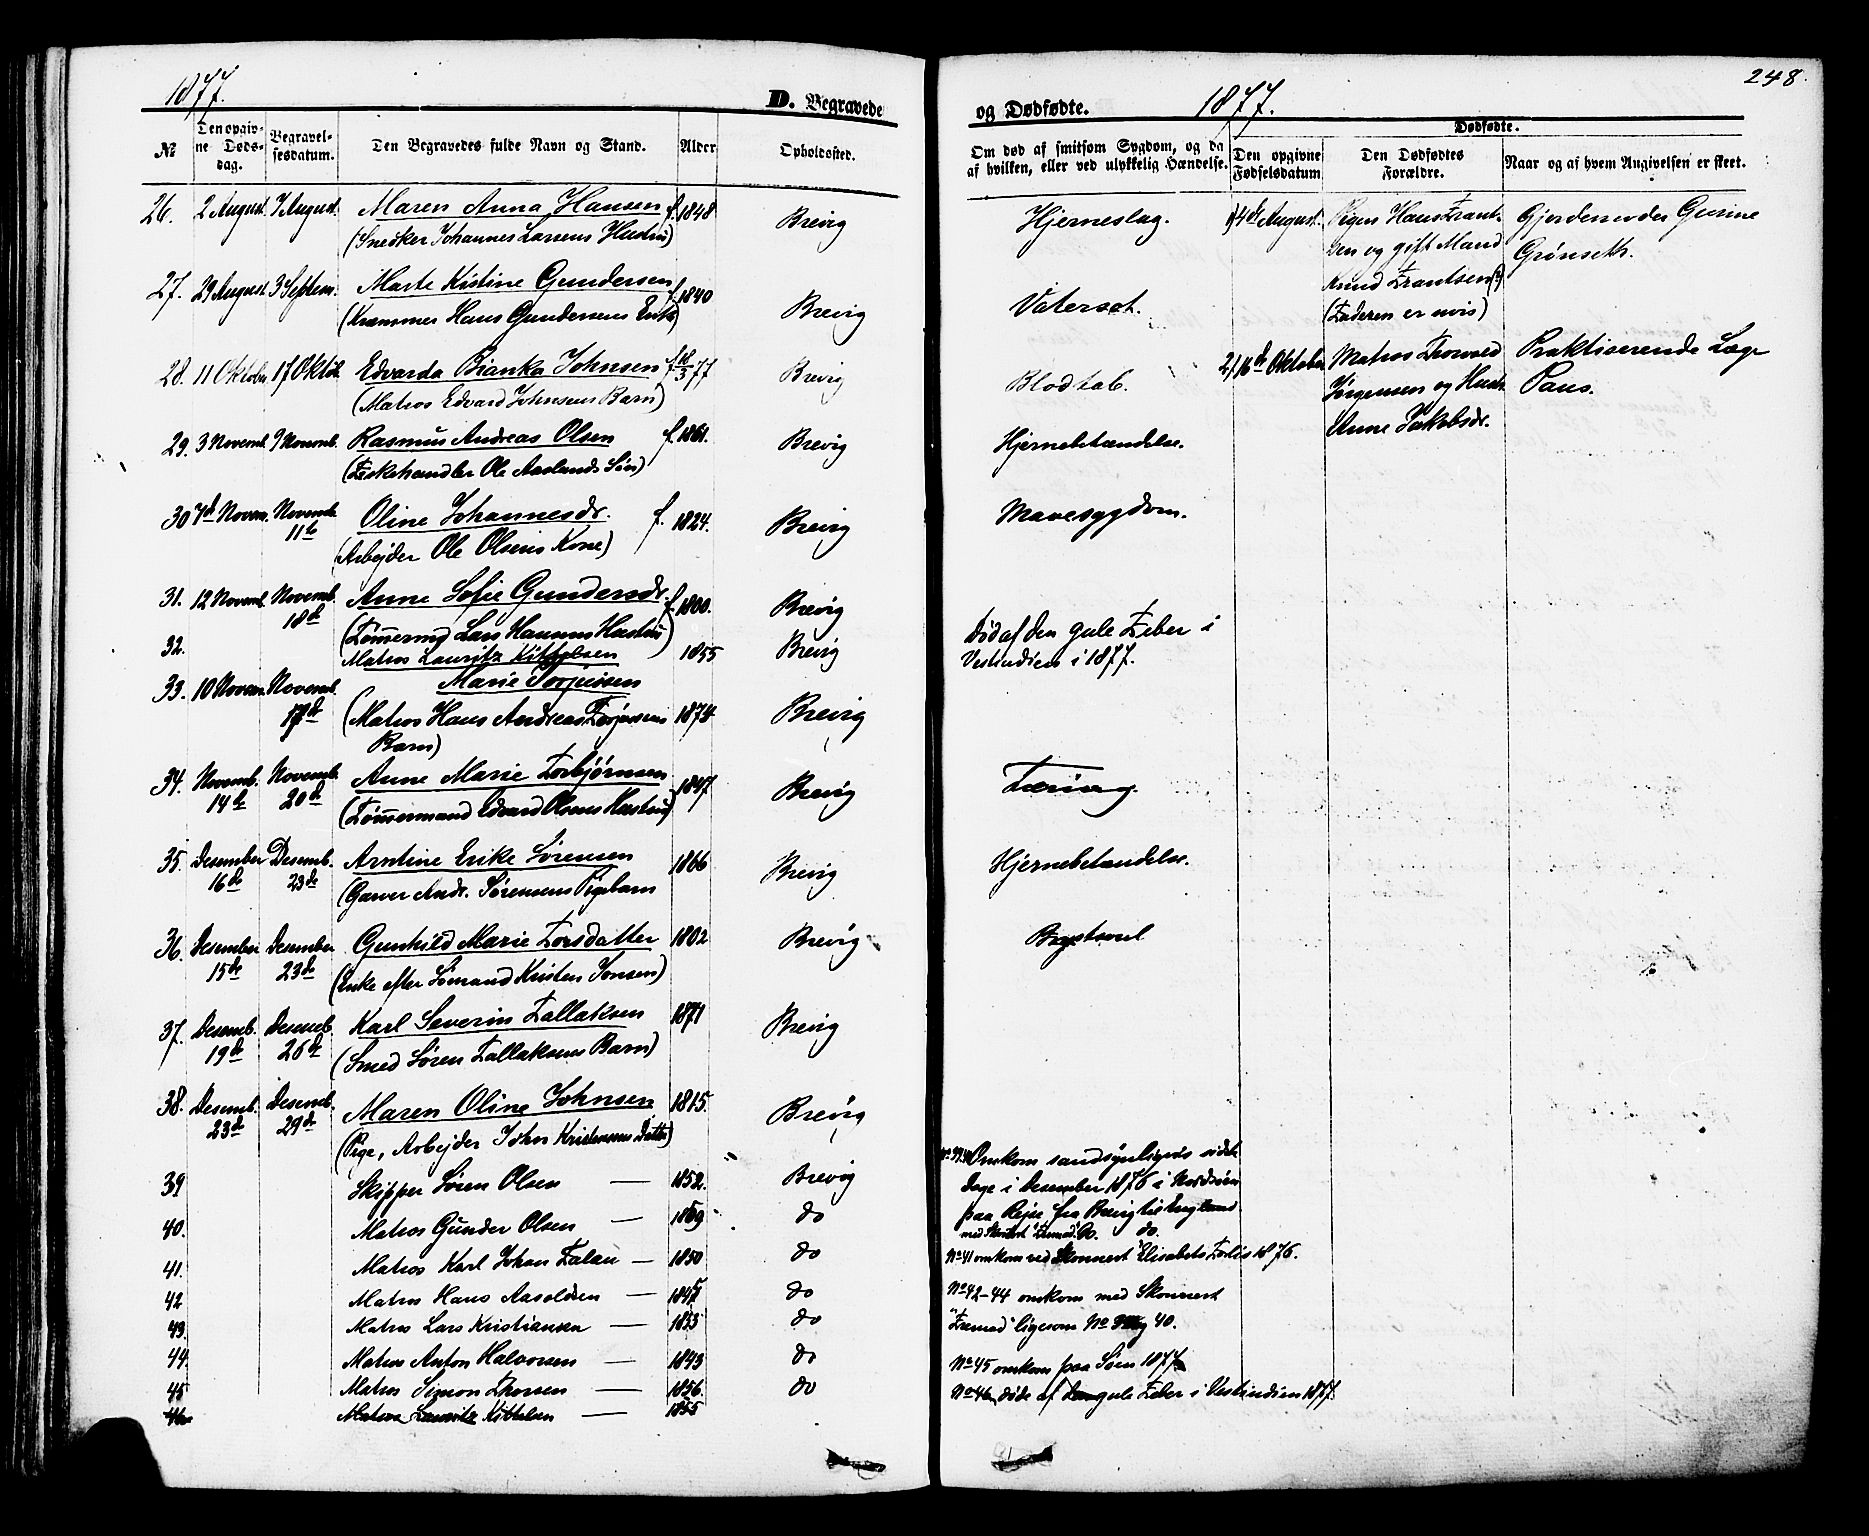 1877.
D. Begravede
№
Den opgiv-
ne Døds-
dag.
Begravel-
sesdatum.
Den Begravedes fulde Navn og Stand.
Alder
Opholdssted.
26. 2 August. 7 August. Maren Anna Hansen f. 1848 Brevig
(Snedker Johannes Larsens Hustru)
27. 29 August 3 Septem. Marte Kistine Gundersen f. 1840 Brevig
(Kræmmer Hans Gundersens Enke)
28. 11 Oktober 17 Oktob. Edvarda Bianka Johnsen f 18/3 77 Brevig
(Matros Edvard Johnsens Barn)
29. 3 Novemb. 9 Novemb. Rasmus Andreas Olsen f. 1861. Brevig
(Fiskehandler Ole Aaslands Søn)
30 7de Novem. Novemb. Oline Johannesdr. f. 1824. Brevig
11te (Arbejder Ole Olsens Kone)
31. 12 Novemb. Novemb. Anne Sofie Gundersdr. f. 1800. Brevig
18de (Tømmermd Lars Hansens Hustru)
32. Matros Lauritz Kittelsen 1855 Brevig
33. 10 Novem. Novemb. Marie Torjussen
17de (Matros Hans Andreas Torjussens 1874 Brevig
Barn)
34. Novemb. Novemb. Anne Marie Torbjørnsen 1847 Brevig
14de 20de (Tømmermand Edvard Olsens Hustru)
35. Desember Desemb. Arntine Erike Sørensen 1866 Brevig
16de 23de (Garver Andr. Sørensens Pigebarn
36. Desember Desember Gunhild Marie Torsdatter 1802 Brevig
15de 23de (Enke efter Sømand Kristen Jonsen)
37. Desemb. Desemb. Karl Severin Tallaksen 1871 Brevig
19de 26de (Smed Søren Tallaksens Barn)
38. Desemb. Desemb. Maren Oline Johnsen 1815. Brevig
23de 29de (Pige, Arbejder John Kristensens Datter)
39 Skipper Søren Olsen — 1852. Brevig
40. Matros Gunder Olsen — 1859 do
41. Matros Karl Johan Falau — 1850 do
42 Matros Hans Aasoldsen — 1845 do
43. Matros Lars Kristiansen — 1833 do
44. Matros Anton Halvorsen — 1843 do
45 Matros Simon Thorsen — 1856. do
46. Matros Lauritz Kittelsen — 1855
og Dødfødte.
1877.
248.
Om død af smitsom Sygdom, og da
af hvilken, eller ved ulykkelig Hændelse.
Dødfødte.
Den opgivne
Fødselsdatum
Den Dødfødtes
Forældre.
Naar og af hvem Angivelsen er skeet.
Hjerneslag.
1) 4de August. Pigen
og gift Mand
Knud Frantsen(?)
(Faderen er uvis)
Gjordemoder Gurine
Grønseth.
Vatersot.
Blodtab.
2) 16de Oktober Matros Thorvald
Jørgensen og Hustr.
Anne Jakobsdr.
Praktiserende Læge
Paus.
Hjernebetændelse.
Mavesygdom.
Død af den gule Feber i
Vestindien i 1877.
Tæring.
Hjernebetændelse.
Brystonde
No 39. Omkom sandsynligvis sidste
Dage i Desember 1876 i Nordsøen
paa Rejse fra Brevig til England
med Skonnert "Fremad" do. do.
No 41 omkom ved Skonnert "Elisabets" Forlis 1876.
No 42-44 omkom med Skonnert
"Fremad" ligesom No 39 og 40.
No 45 omkom paa Søen 1877
No 46, døde af den gule Feber i Vestindien 1877.